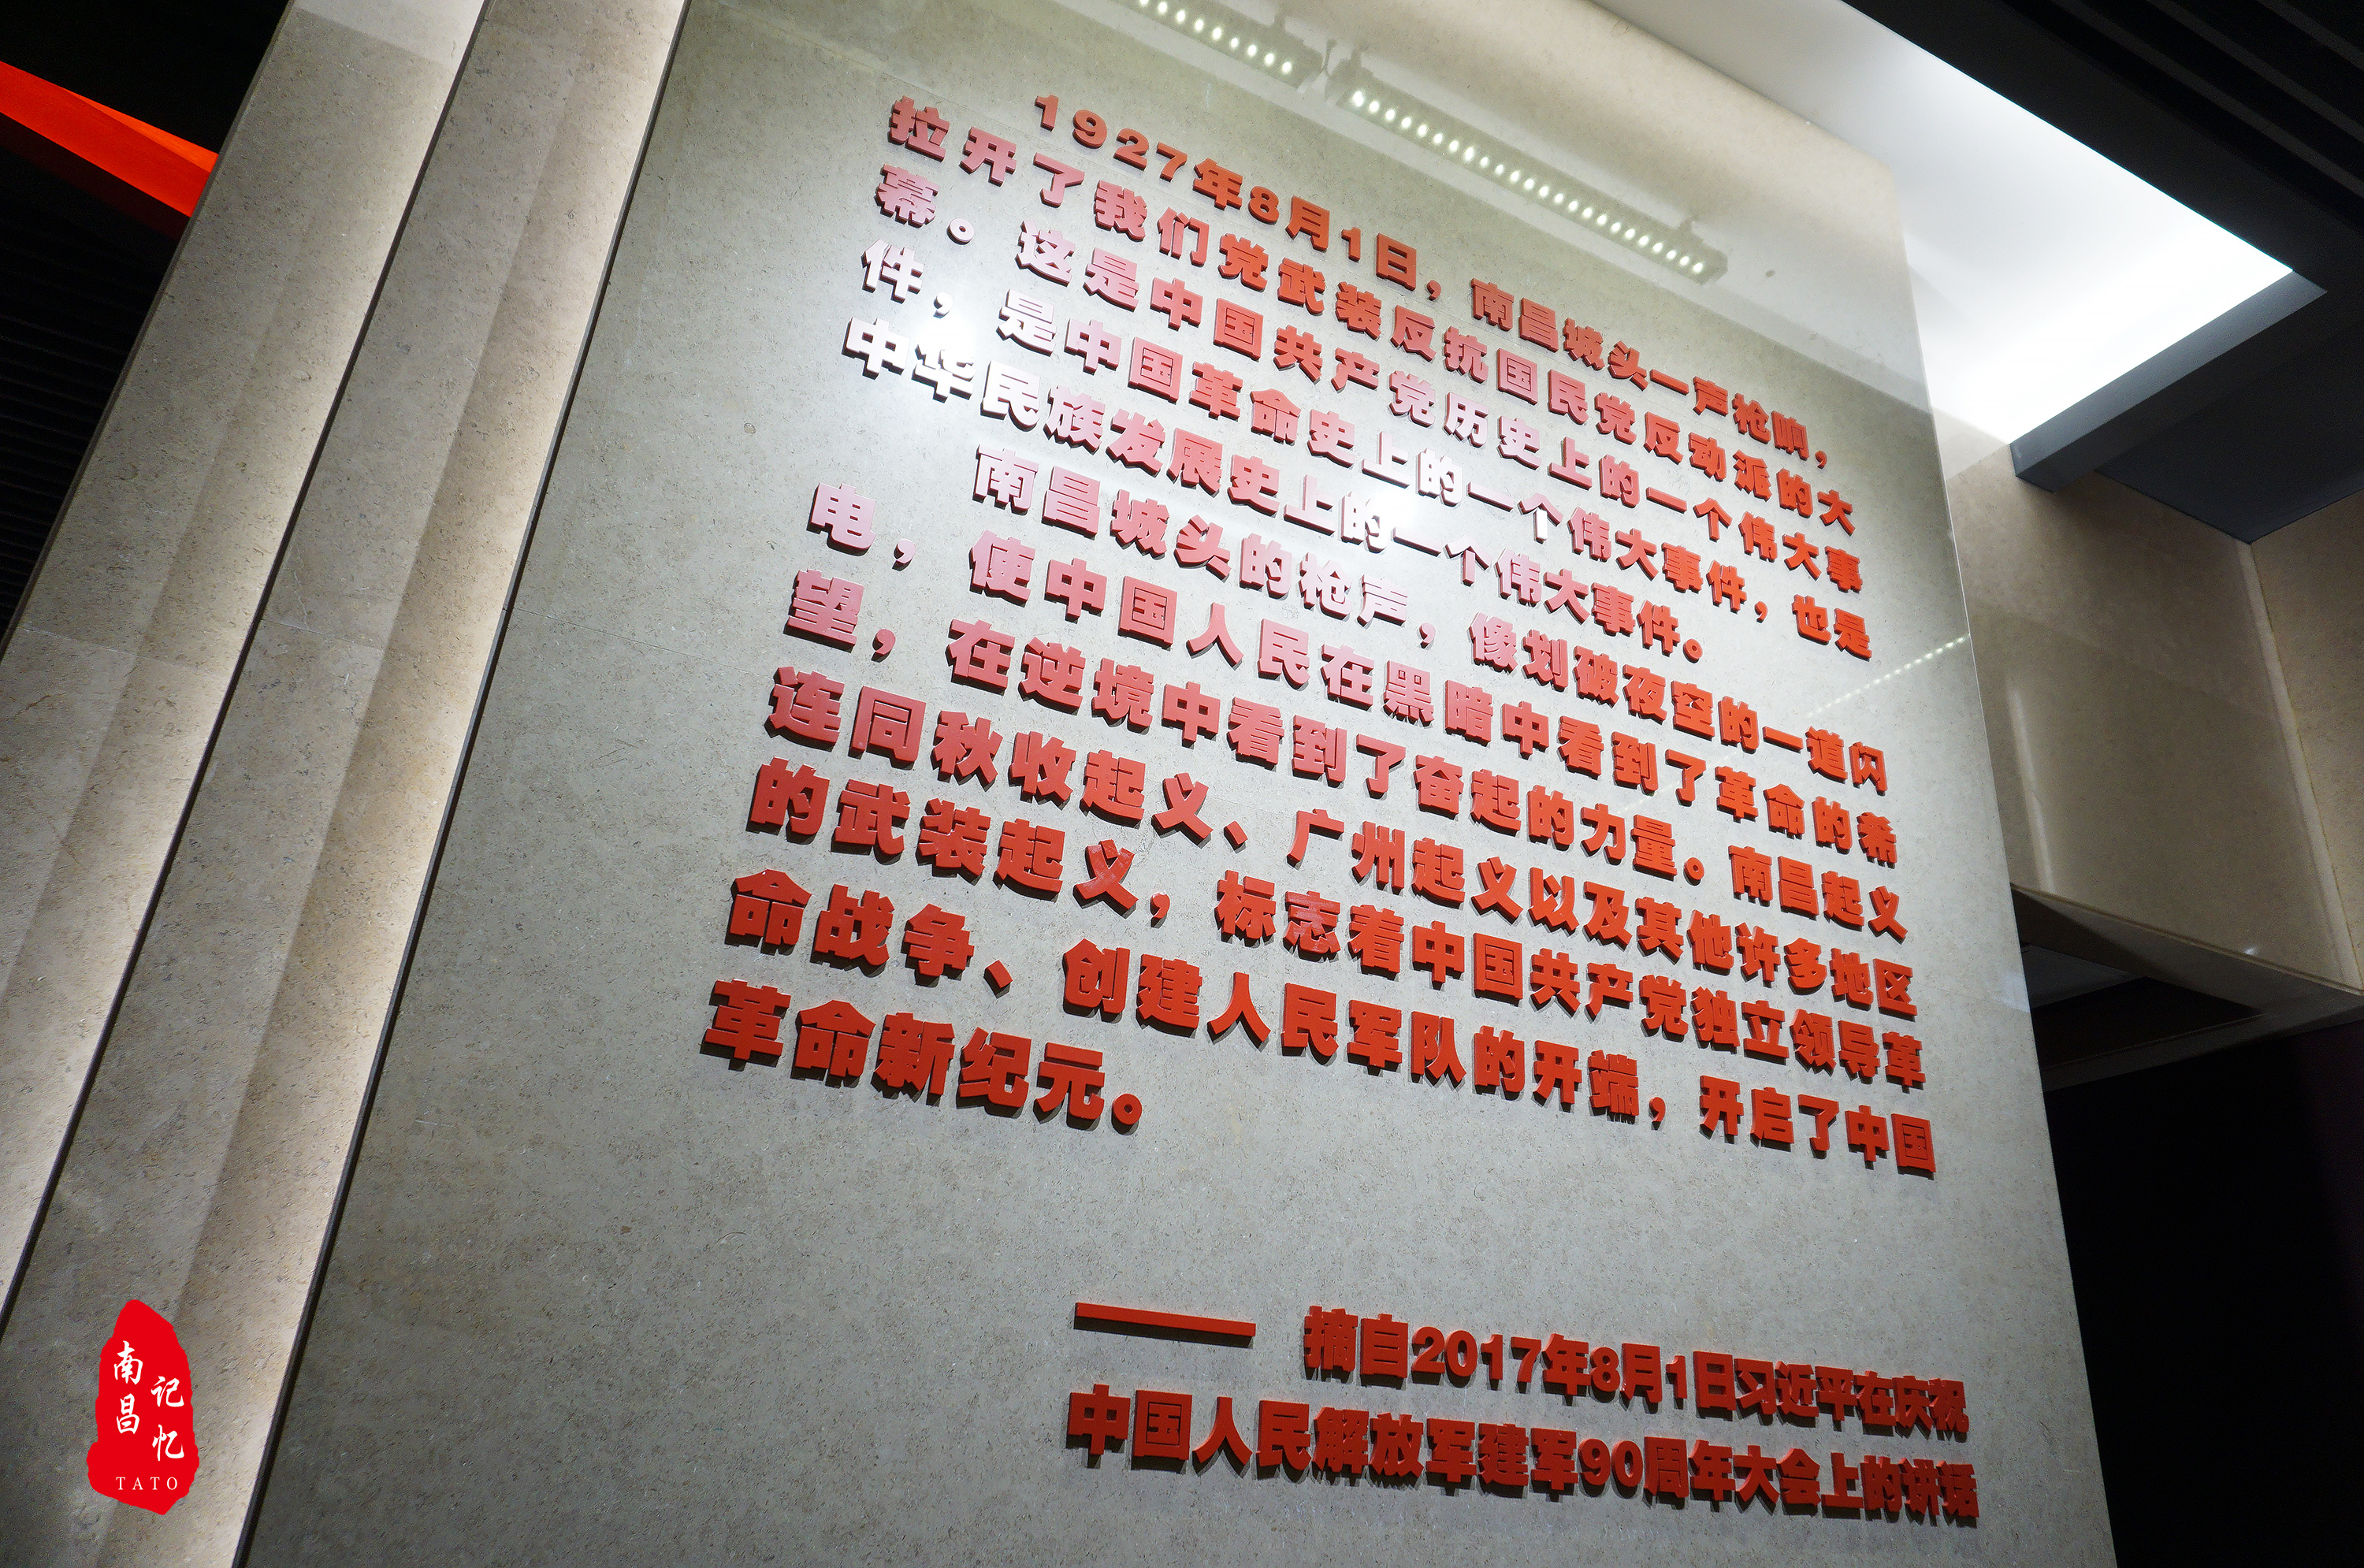 1927年8月1日，南昌城头一声枪响，
拉开了我们党武装反抗国民党反动派的大
幕。这是中国共产党历史上的一个伟大事
件，是中国革命史上的一个伟大事件，也是
中华民族发展史上的一个伟大事件。
南昌城头的枪声，像划破夜空的一道闪
电，使中国人民在黑暗中看到了革命的希
望，在逆境中看到了奋起的力量。南昌起义
连同秋收起义、广州起义以及其他许多地区
的武装起义，标志着中国共产党独立领导革
命战争、创建人民军队的开端，开启了中国
革命新纪元。
—— 摘自2017年8月1日习近平在庆祝
中国人民解放军建军90周年大会上的讲话
南昌
记忆
TATO